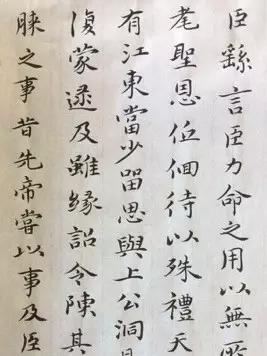 臣繇言臣力命之用以無所
耄聖恩低佪待以殊禮天
有江東當少留思與上公同
復蒙逮及雖緣詔令陳其
之事昔先帝嘗以事及臣